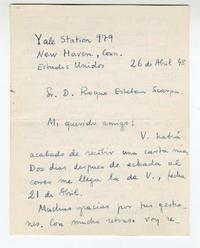 Yale Station 979
New Haven, Conn.
Estados Unidos
26 de Abril 48
Sr. D. Roque Esteban Scarpa.
Mi querido amigo:
V. habrá
acabado de recibir una carta mía.
Dos días después de echada al
correo me llega la de V., fecha
21 de Abril.
Muchas gracias por sus gestio-
nes. Con mucho retraso voy re-